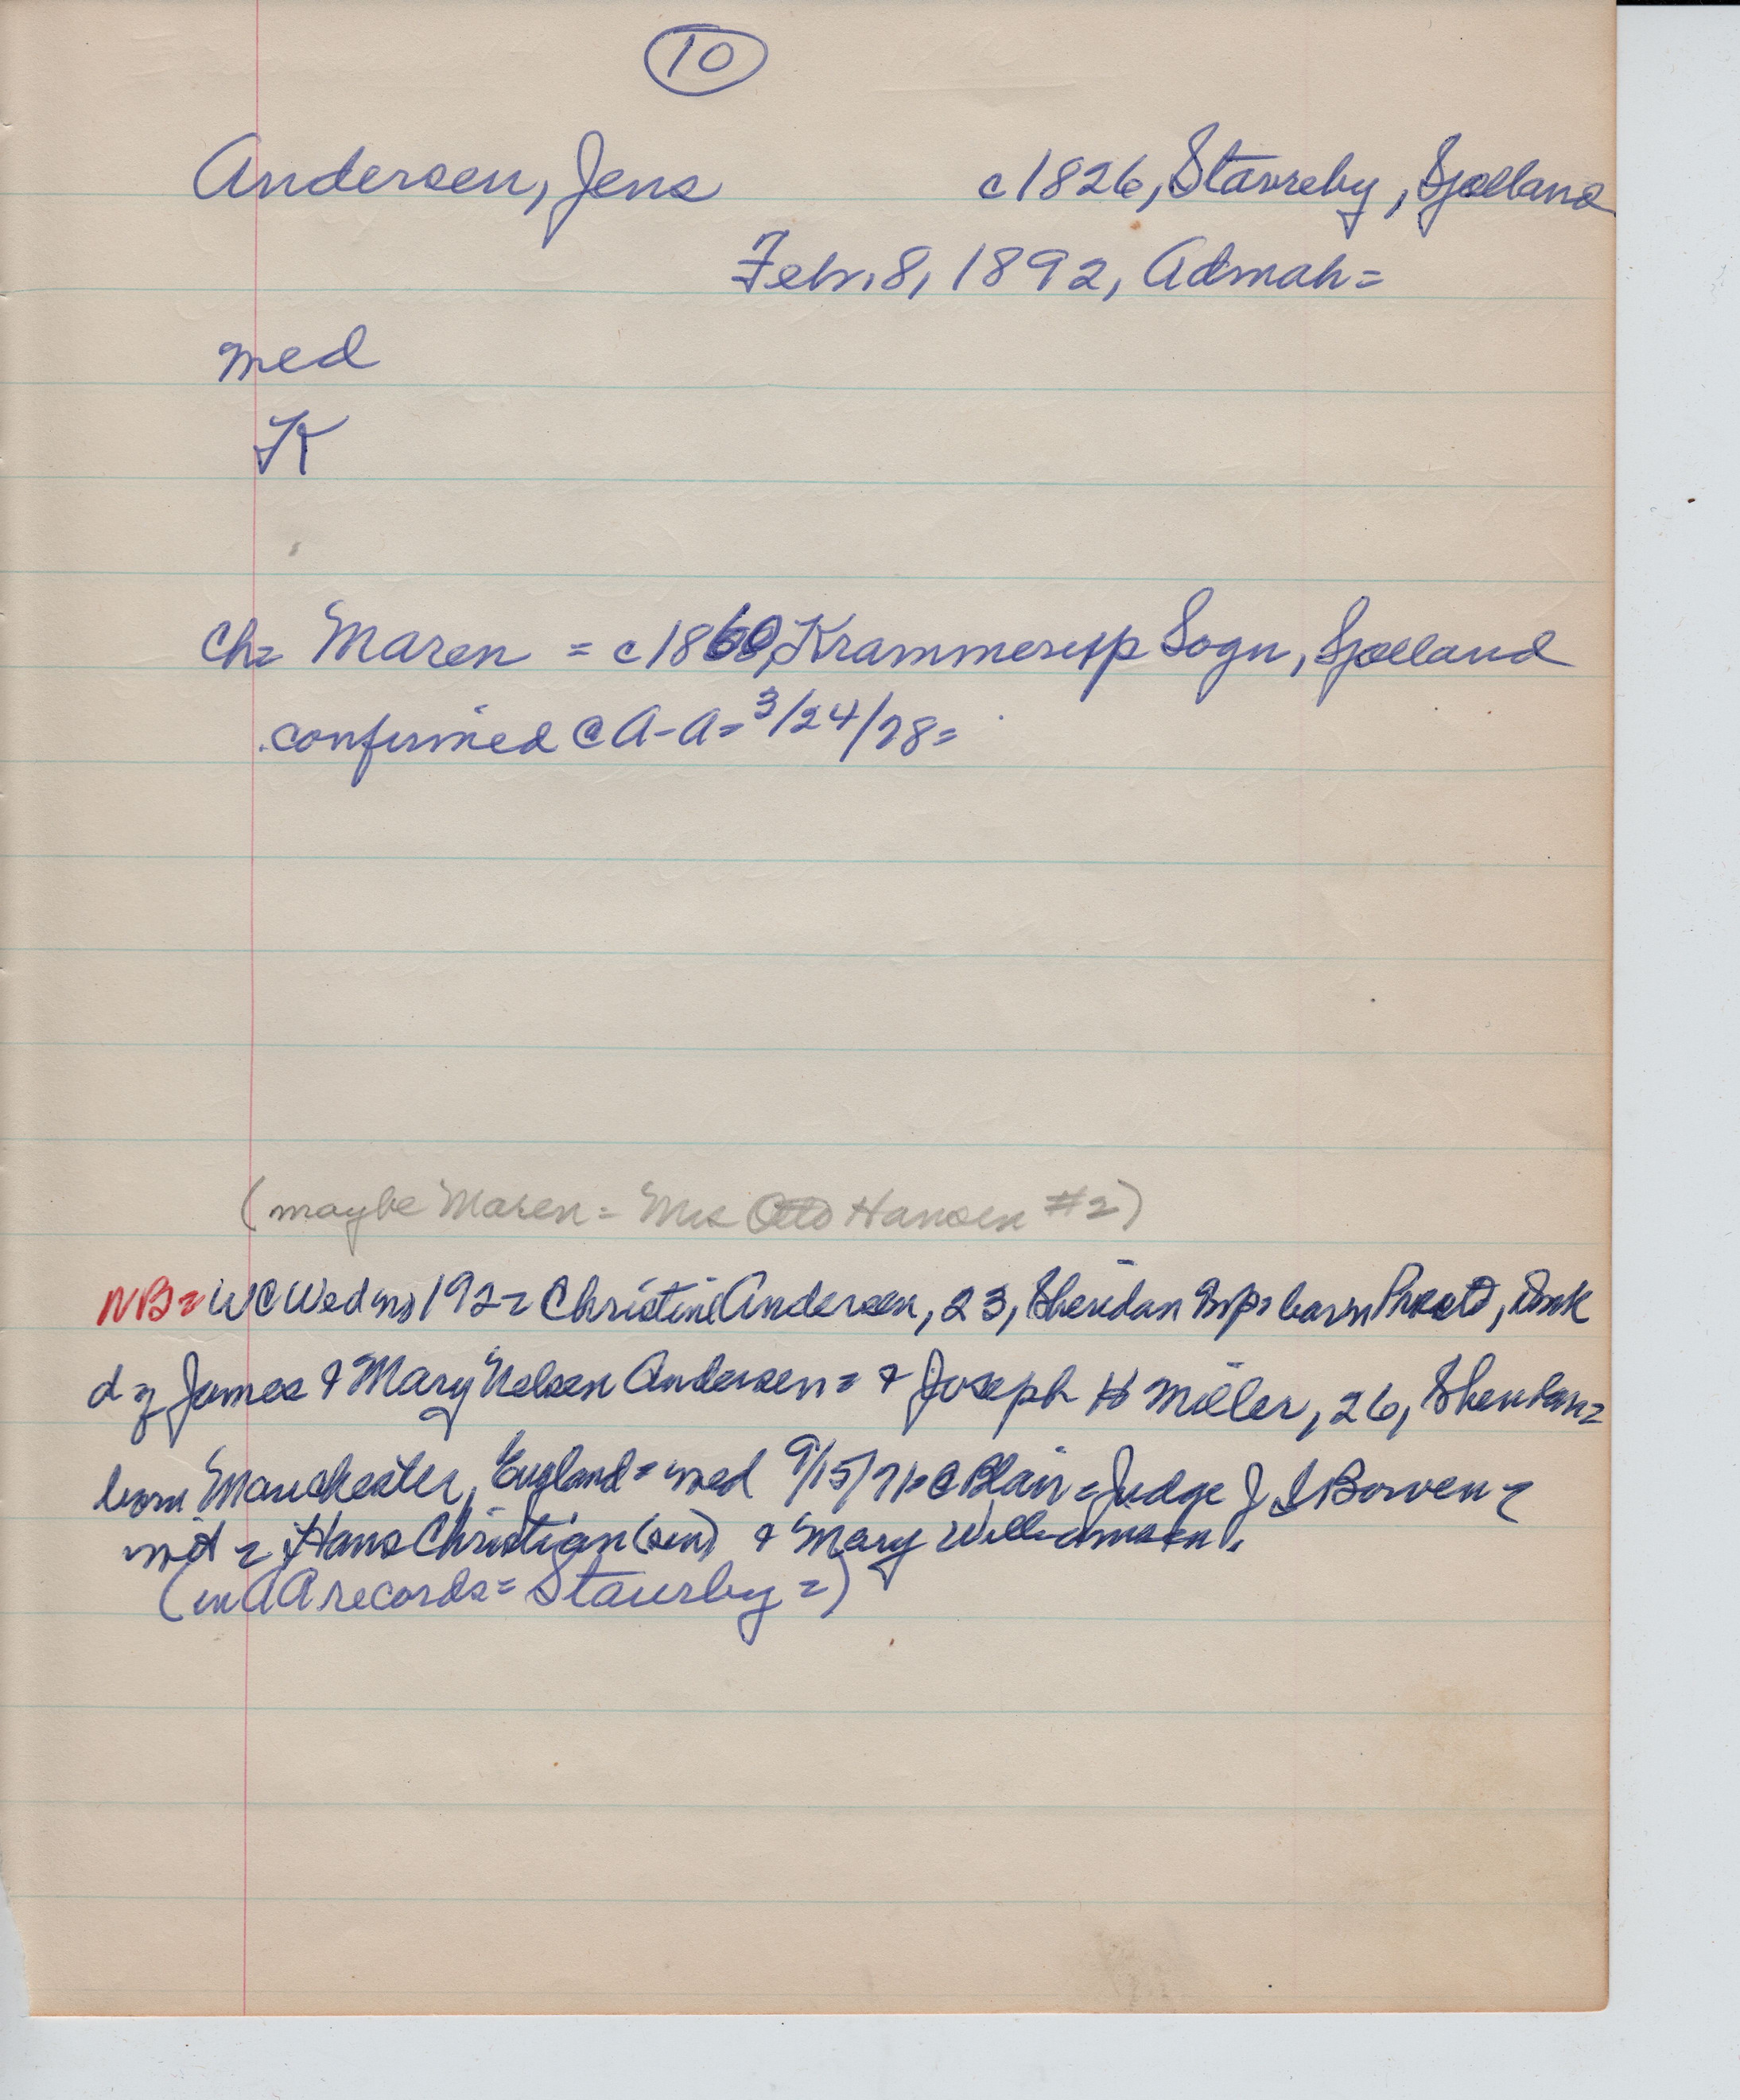 10
Andersen, Jens c1826, Stavreby, Sjælland
Febr. 8, 1892, Admah=
med
K
Ch= Maren = c1860, Krammesup Sogn, Sjælland
confirmed @ A-A= 3/24/78=
(maybe Maren = Mrs Otto Hansen #2)
NB= WC Wed no 192= Christine Andersen, 23, Sheridan Tnp= born, Dmk
d of James & Mary Nelsen Andersen= & Joseph H Miller, 26, Sheridan=
born Manchester, England= med 9/15/71= @ Blair= Judge J S Bowen=
wit= Hans Christian(sen) & Mary Williamsen.
(in AA records= Staurby=)